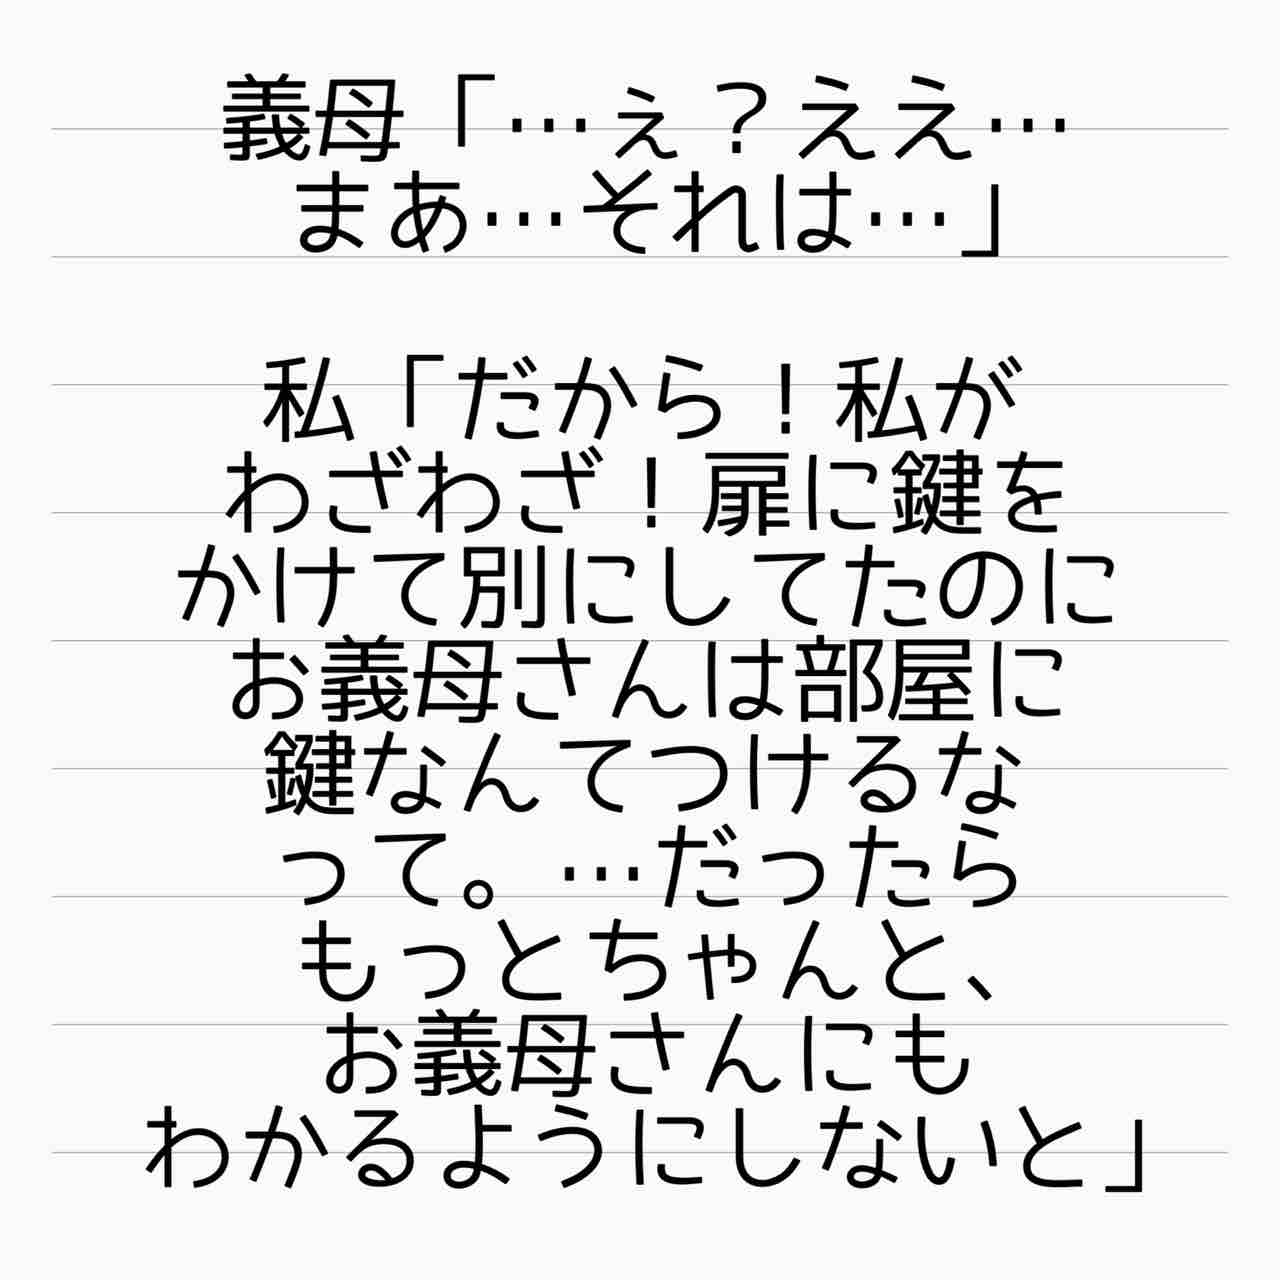 義母「…ぇ？ええ…
まあ…それは…」
私「だから！私が
わざわざ！扉に鍵を
かけて別にしてたのに
お義母さんは部屋に
鍵なんてつけるな
って。…だったら
もっとちゃんと、
お義母さんにも
わかるようにしないと」